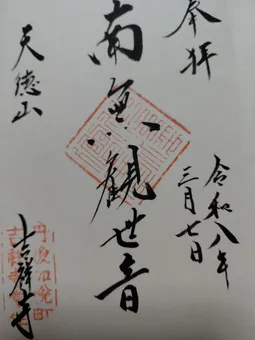 奉拝
令和八年
三月七日
南無観世音
天徳山
吉祥寺